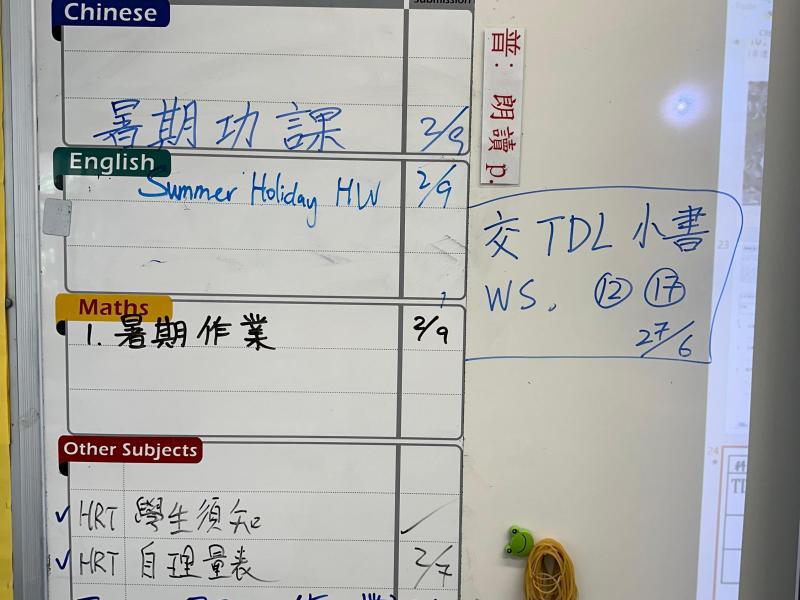 Submission
Chinese
暑期功課 2/9
English
Summer Holiday HW 2/9
Maths
1. 暑期作業 2/9
Other Subjects
✓ HRT 學生須知 /
✓ HRT 自理量表 2/7
普：朗讀 p.
交 TDL 小書
WS. ⑫ ⑰
27/6
23
24